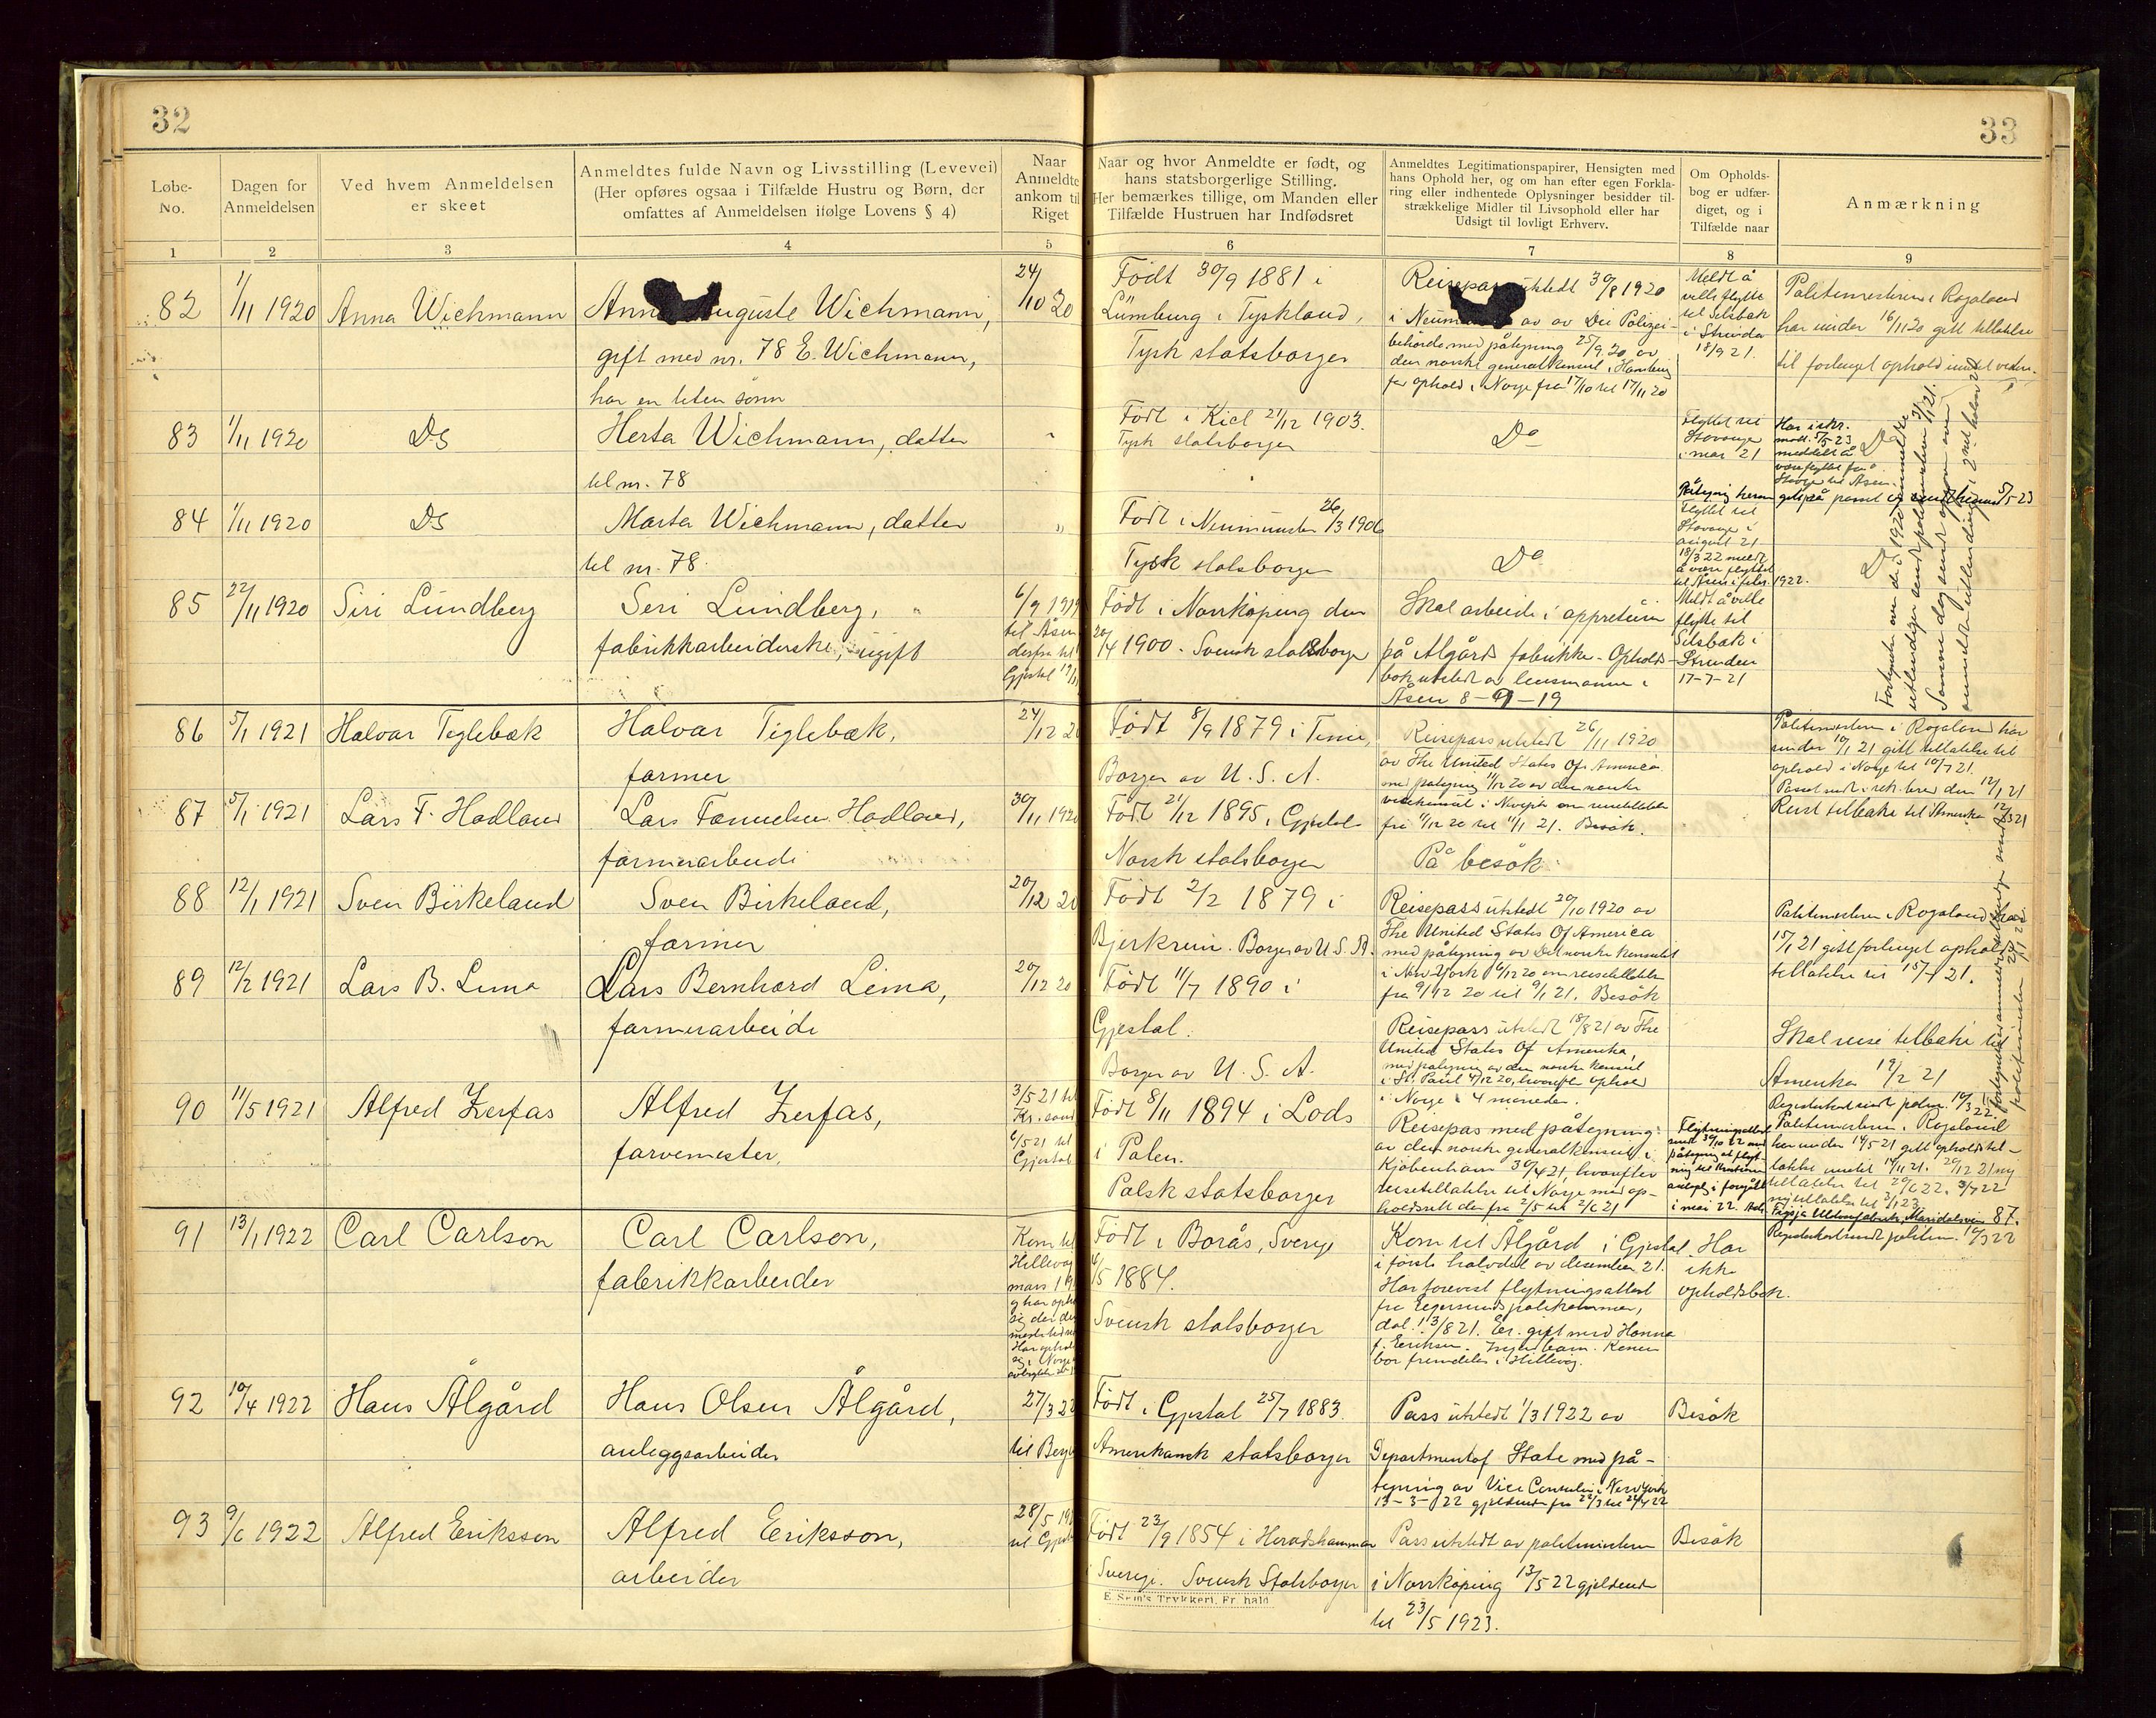 32
33
Løbe-
No.
Dagen for
Anmeldelsen
Ved hvem Anmeldelsen
er skeet
Anmeldtes fulde Navn og Livsstilling (Levevei)
(Her opføres ogsaa i Tilfælde Hustru og Børn, der
omfattes af Anmeldelsen ifølge Lovens § 4)
Naar
Anmeldte
ankom til
Riget
Naar og hvor Anmeldte er født, og
hans statsborgerlige Stilling.
Her bemærkes tillige, om Manden eller
Tilfælde Hustruen har Indfødsret
Anmeldtes Legitimationspapirer, Hensigten med
hans Ophold her, og om han efter egen Forkla-
ring eller indhentede Oplysninger besidder til-
strækkelige Midler til Livsophold eller har
Udsigt til lovligt Erhverv.
Om Opholds-
bog er udfær-
diget, og i
Tilfælde naar
Anmærkning
1 2 3 4 5 6 7 8 9
82 1/11 1920 Anna Wichmann
Auguste Wichmann,
gift med nr. 78 E. Wichmann,
har en liten sønn
24/10 20
Født 30/9 1881 i
Lümburg i Tyskland,
Tysk statsborger
Reisepass utstedt 30/8 1920
av Die Polizei-
behörde med påtegning 25/9 20 av
den norske generalkonsul i Hamburg
for ophold i Norge fra 17/10 til 17/11 20
Meldt å
ville flytte
til Selsbak
i Strinda
18/9 21.
Politimesteren i Rogaland
har under 16/11 20 gitt tillatelse
til forlenget ophold inntil videre.
83 1/11 1920 Do
Herta Wichmann, datter
til nr. 78
Født i Kiel 21/12 1903.
Tysk statsborger
Do
Flyttet til
Stavanger
i mai 21
Har i skr.
mott. 5/5 23
meddelt å
være flyttet fra
Stavgr til Åsen.
Do
84 1/11 1920 Do
Marta Wichmann, datter
til nr. 78.
"
Født i Neumünster 26/3 1906
Tysk statsborger
Do
Flyttet til
Stavanger i
august 21
18/3 22 meldt
å være flyttet
til Åsen i febr. 1922.
Do
85 22/11 1920 Siri Lundberg
Seri Lundberg,
fabrikkarbeiderske, ugift
6/9 1919
til Åsen
derfra til
Gjestal
Født i Norrköping den
20/4 1900. Svensk statsborger
Skal arbeide i appretùren
på Ålgårds fabrikke. Opholds-
bok utstedt av lensmannen i
Åsen 8-9-19
Meldt å ville
flytte til
Selsbak i
Strinden
17-7-21
86 5/1 1921 Halvar Teglebæk
Halvar Tiglebæk,
farmer
24/12 20
Født 8/9 1879 i Time,
Borger av U. S. A.
Reisepass utstedt 26/11 1920
av The United States Of America
med påtegning 11/12 20 av den norske
fra 11/12 20 til 11/1 21. Besøk.
Politimesteren i Rogaland har
under 10/1 21 gitt tillatelse til
ophold i Norge til 10/7 21.
Passet sendt i rek. brev den 12/1 21
Reist tilbake til Amerika
87 5/1 1921 Lars F. Hadland
Lars Hadland,
farmerarbeide
30/11 1920
Født 21/12 1895 i Gjestal
Norsk statsborger
På besøk
88 12/1 1921 Sven Birkeland
Sven Birkeland,
farmer
20/12 20
Født 2/2 1879 i
Bjerkrein. Borger av U. S. A.
Reisepass utstedt 20/10 1920 av
The United States Of America
med påtegning av Det norske konsulat
i New York 6/12 20 om reisetillatelse
fra 9/12 20 til 9/1 21. Besøk
Politimesteren i Rogaland har
15/1 21 gitt forlenget opholds-
tillatelse til 15/7 21.
89 12/2 1921 Lars B. Lima
Lars Bernhard Lima,
farmerarbeide
20/12 20
Født 11/7 1890 i
Gjestal.
Borger av U. S. A.
Reisepass utstedt 18/8 21 av The
United States Of Amerika,
med påtegning av den norske konsul
i St. Paul 4/12 20, hvorefter ophold
i Norge i 4 måneder.
Skal reise tilbake til
Amerika 19/2 21
90 11/5 1921 Alfred Zerfas
Alfred Zerfas,
farvemester,
3/5 21 til
Kr. sand
6/5 21 til
Gjestal
Født 8/11 1894 i Lods
i Polen.
Polsk statsborger
Reisepas med påtegning
av den norske generalkonsul i
Kjøbenhavn 30/4 21, hvorefter
reisetillatelse til Norge med op-
holdsrett der fra 2/5 til 2/6 21
Politimesteren i Rogaland
har under 14/5 21 gitt opholdstil-
latelse inntil 14/11 21. 20/12 21 ny
tillatelse til 20/6 22. 3/7 22
ny tillatelse til 3/1 23.
91 13/1 1922 Carl Carlson
Carl Carlson,
fabrikkarbeider
Kom til
Hillevåg
Født i Borås, Sverige
1884.
Svensk statsborger
Kom til Ålgård i Gjestal
i første halvdel av desember 21.
Har forevist flytningsattest
fra Egersunds politikammer,
dat. 13/8 21. Er gift med Hanna
f. Eriksen. Ingen barn. Konen
bor fremdeles i Hillevåg.
Har
ikke
opholdsbok.
92 10/4 1922 Hans Ålgård
Hans Olsen Ålgård,
anleggsarbeider
27/3 22
Født i Gjestal 25/7 1883.
Amerikansk statsborger
Pass utstedt 1/3 1922 av
Department of State med på-
tegning av Vice Consulen i New York
13-3-22 gjeldende fra 22/3 til 22/4 22
Besøk
93 9/6 1922 Alfred Eriksson
Alfred Eriksson,
arbeider
Født 23/9 1854 i Heradshammar
i Sverige. Svensk Statsborger
Pass utstedt av politimesteren
i Norrköping 13/5 22 gjeldende
til 23/5 1923.
Besøk
E. Sem's Trykkeri, Fr.hald